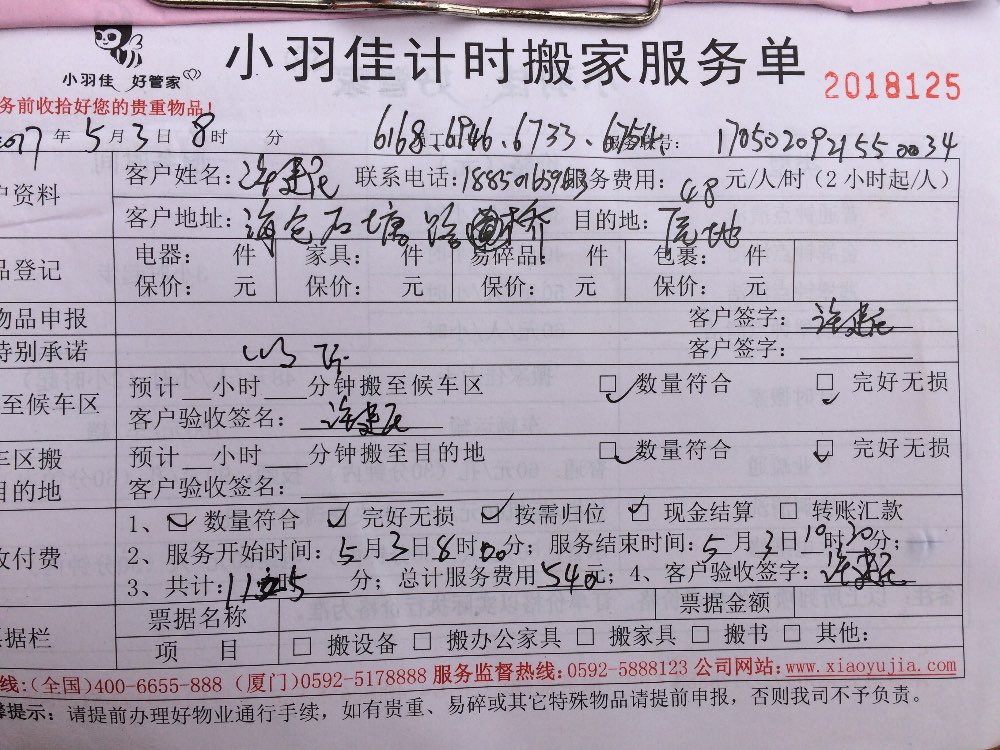 小羽佳 好管家
小羽佳计时搬家服务单
2018125
务前收拾好您的贵重物品！
2017年5月3日8时 分 6168.6946.6733. 170502092155 0034
户资料
客户姓名： 联系电话： 服务费用：48元/人/时（2小时起/人）
客户地址：海仓石塘路 桥 目的地：
品登记
电器： 件 家具： 件 易碎品： 件 包裹： 件
保价： 元 保价： 元 保价： 元 保价： 元
物品申报 客户签字：
特别承诺 客户签字：
至候车区
预计__小时___分钟搬至候车区 □数量符合 □ 完好无损
客户验收签名：
车区搬
目的地
预计__小时___分钟搬至目的地 □数量符合 □ 完好无损
客户验收签名：
收付费
1、☑ 数量符合 ☑ 完好无损 ☑ 按需归位 ☑ 现金结算 □ 转账汇款
2、服务开始时间：5月3日8时00分；服务结束时间：5月3日10时20分；
3、共计： 分；总计服务费用540元；4、客户验收签字：
票据栏
票据名称 票据金额
项 目 □ 搬设备 □ 搬办公家具 □ 搬家具 □ 搬书 □ 其他：
线：(全国)400-6655-888（厦门)0592-5178888 服务监督热线：0592-5888123 公司网站：www.xiaoyujia.com
馨提示：请提前办理好物业通行手续，如有贵重、易碎或其它特殊物品请提前申报，否则我司不予负责。